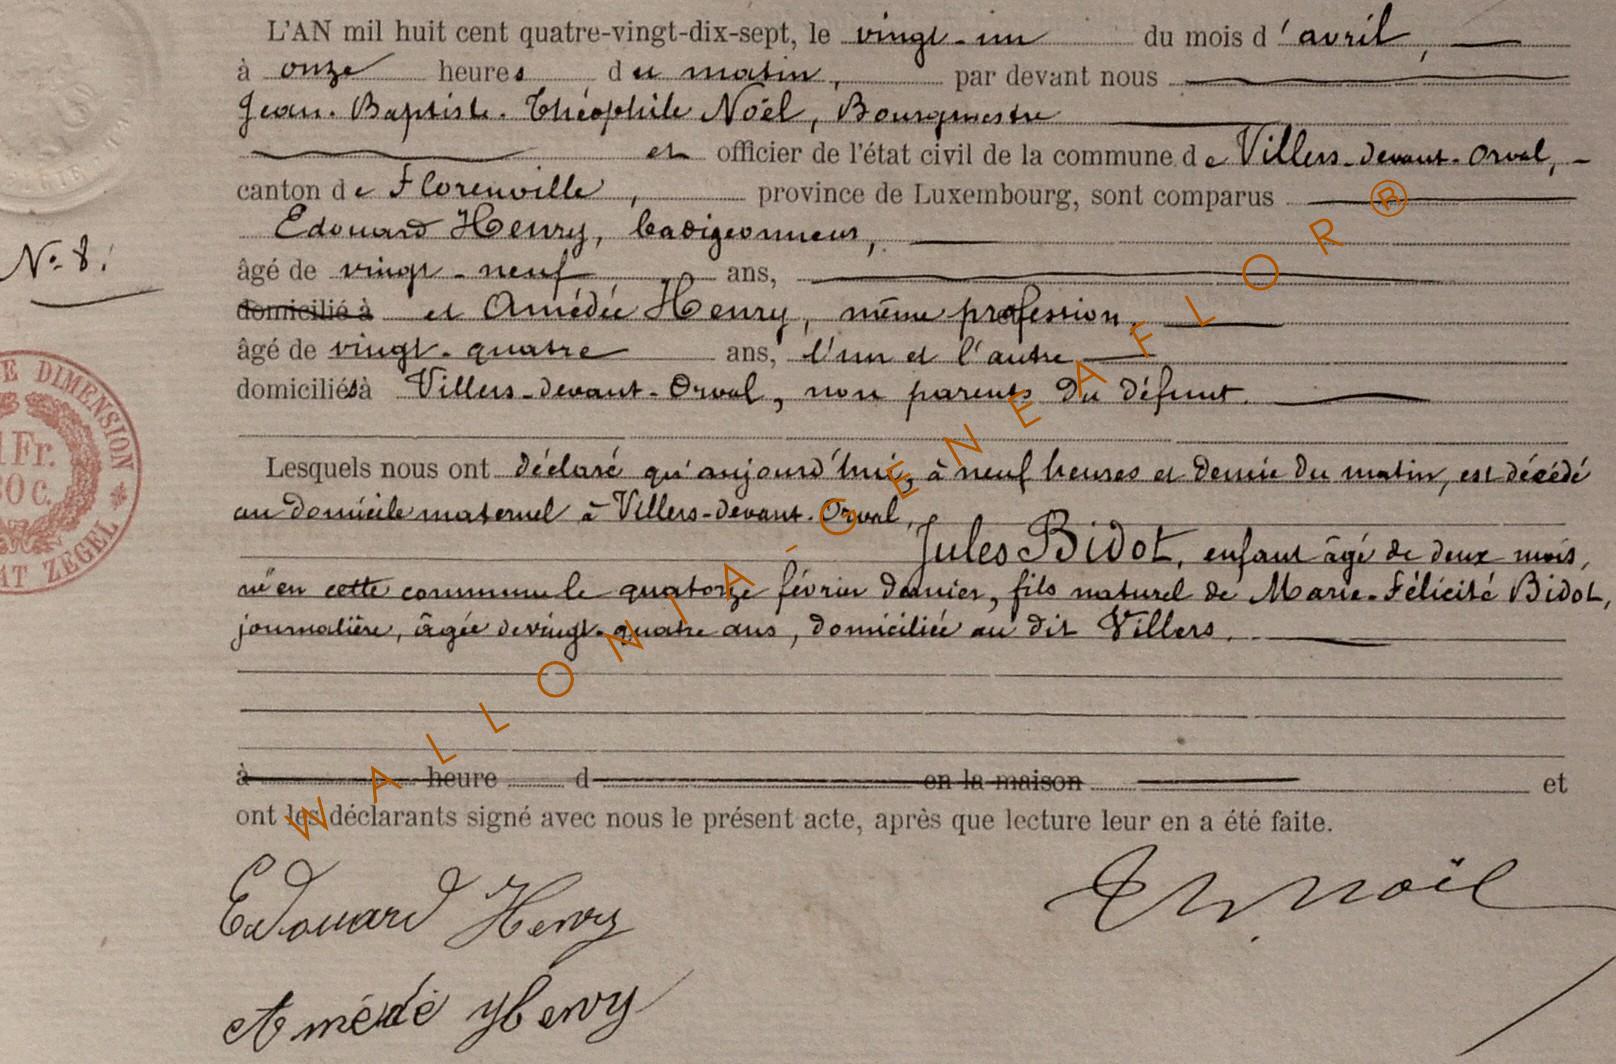 L'AN mil huit cent quatre-vingt-dix-sept, le vingt-un du mois d'avril,
à onze heures du matin, par devant nous
Jean-Baptiste-Théophile Noël, Bourgmestre
et officier de l'état civil de la commune de Villers-devant-Orval,
canton de Florenville, province de Luxembourg, sont comparus
Edouard Henry, badigeonneur,
N° 8.
âgé de vingt-neuf ans,
domicilié à et Amédée Henry, même profession,
âgé de vingt-quatre ans, l'un et l'autre
domiciliés à Villers-devant-Orval, non parents du défunt.
E DIMENSION
1 Fr.
80 C.
AT ZEGEL
Lesquels nous ont déclaré qu'aujourd'hui, à neuf heures et demie du matin, est décédé
au domicile maternel à Villers-devant-Orval,
Jules Bidot, enfant âgé de deux mois,
né en cette commune le quatorze février dernier, fils naturel de Marie-Félicité Bidot,
journalière, âgée de vingt-quatre ans, domiciliée au dit Villers.
à heure d en la maison et
ont les déclarants signé avec nous le présent acte, après que lecture leur en a été faite.
Edouard Henry
Th Noël
Amédé Henry
WALLONIA-GENEAFLOR®